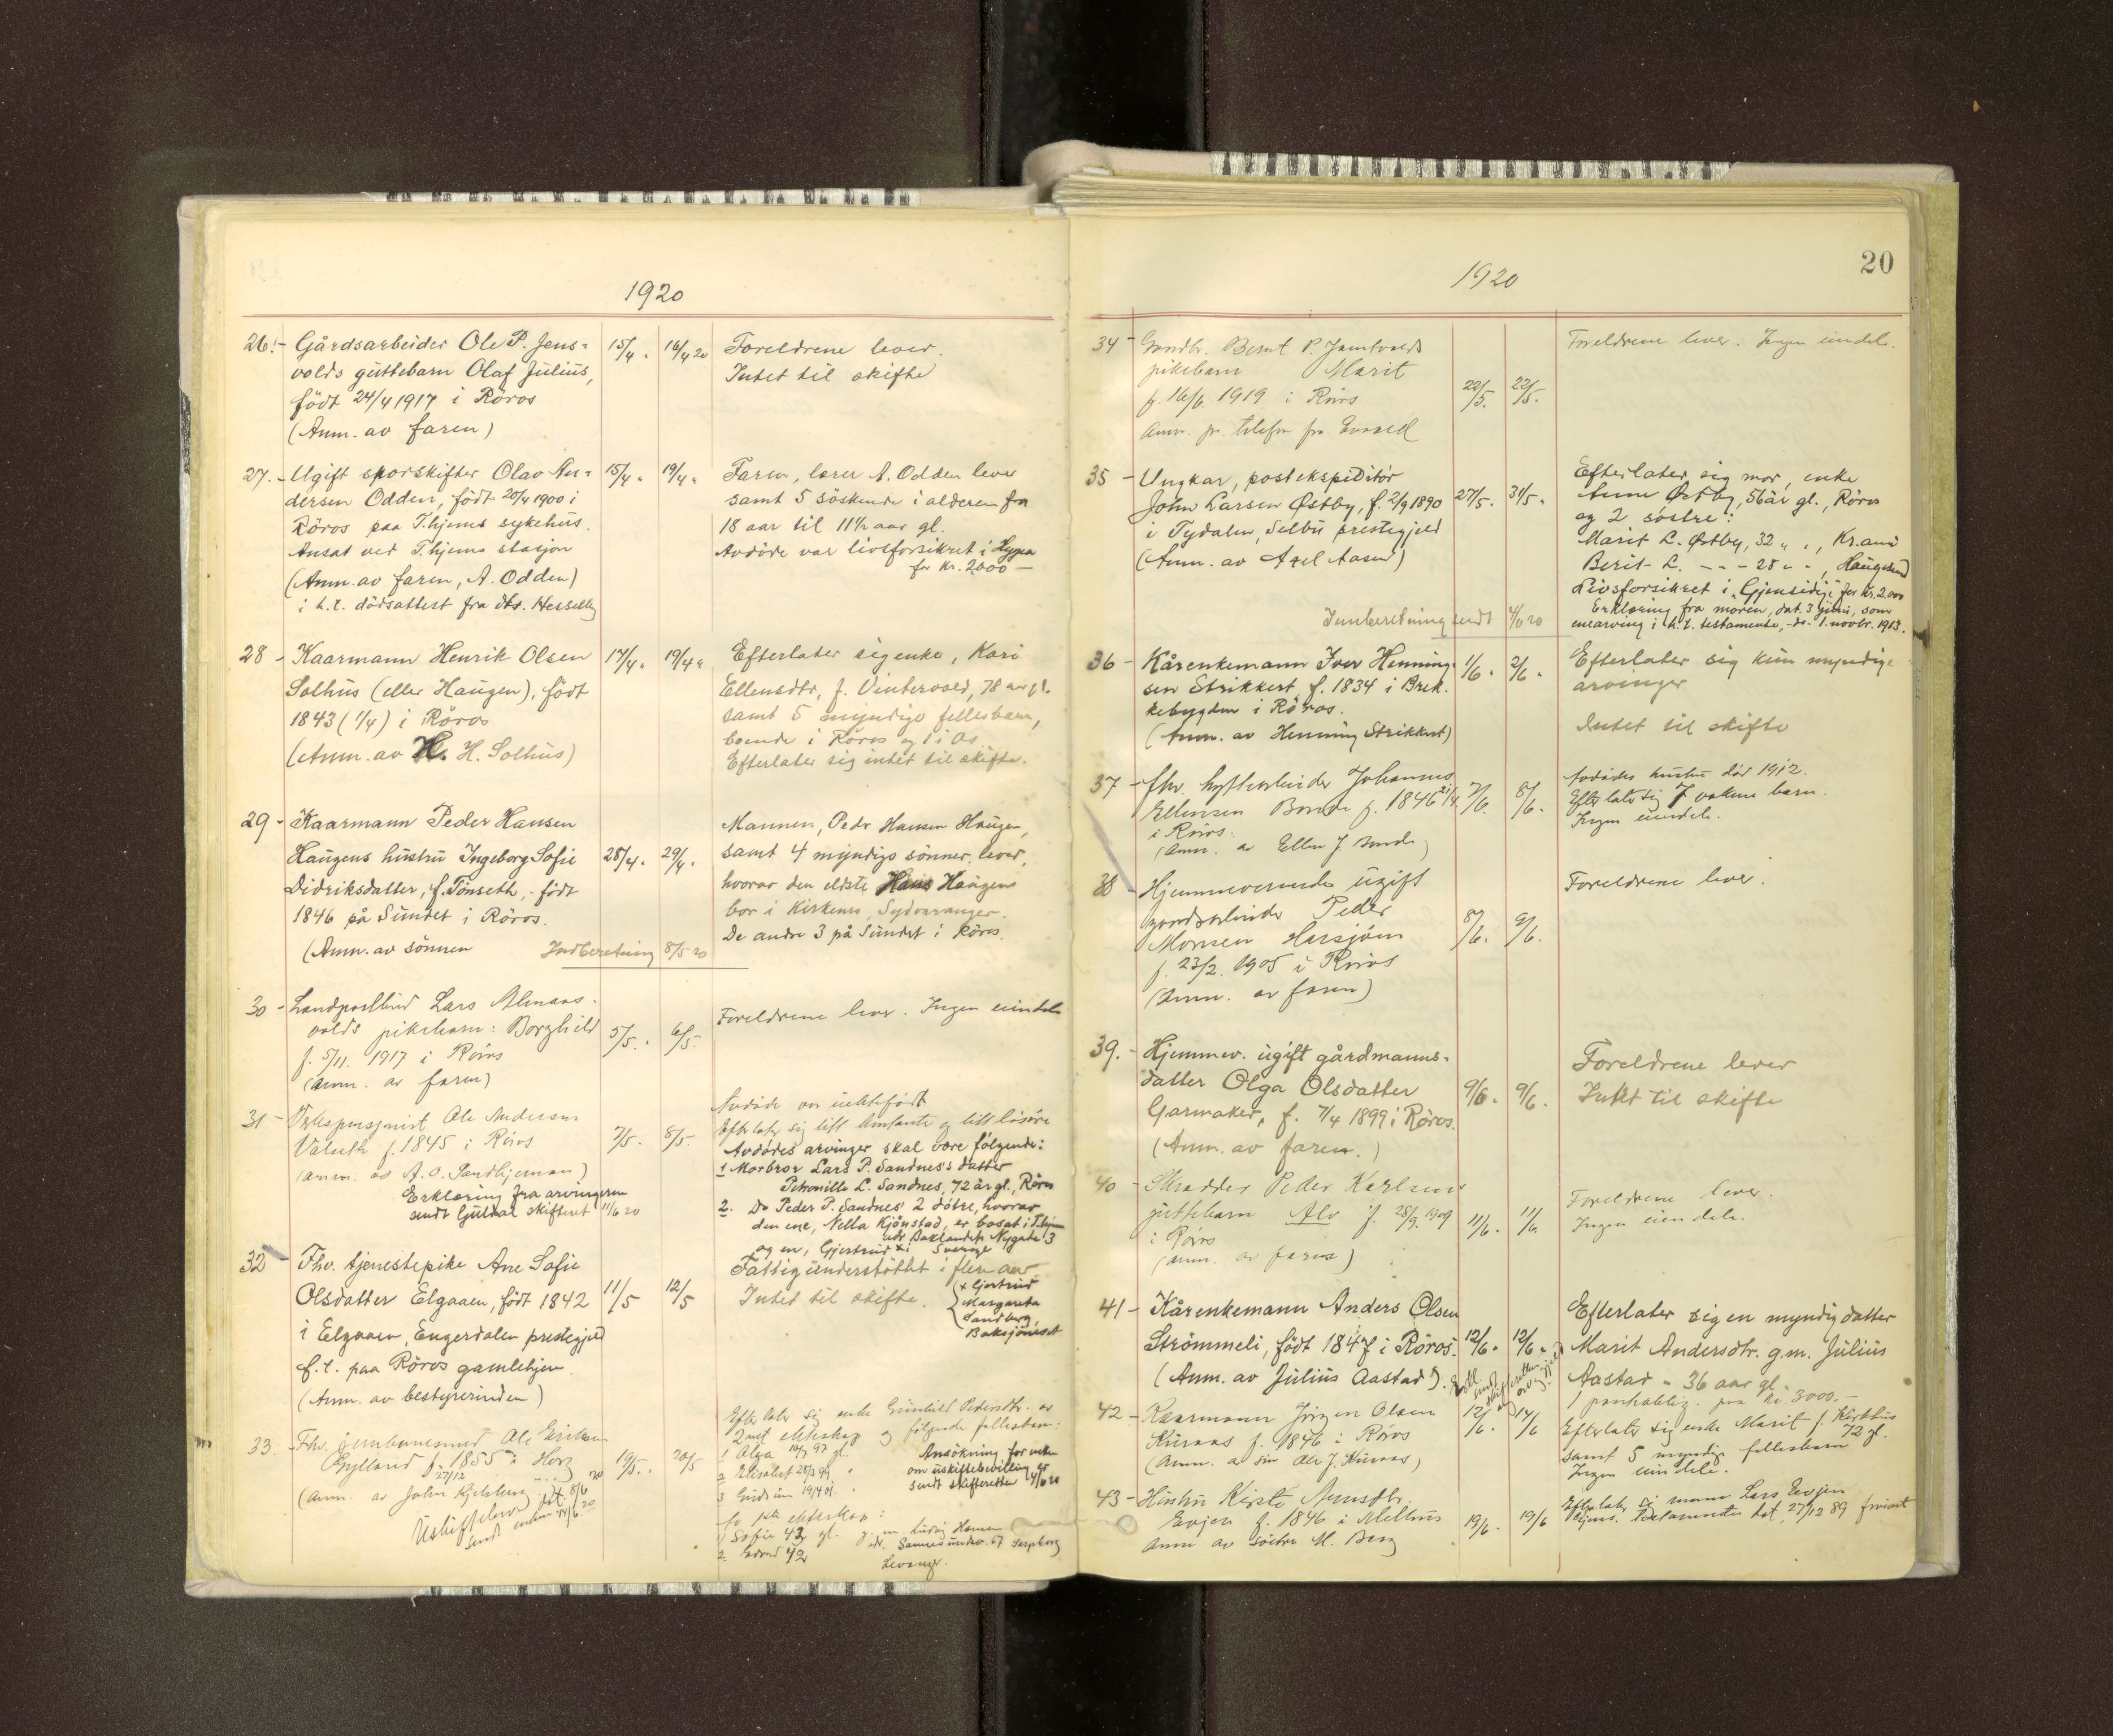 1920
26.- Gårdsarbeider Ole P. Jens= 15/4. 16/4 20 Foreldrene lever.
volds guttebarn Olaf Julius, Intet til skifte
födt 24/4 1917 i Röros
(Anm. av faren)
27.- Ugift sporskifter Olav An= 15/4. 19/4. Faren, lærer A. Odden lever
dersen Odden, födt 20/4 1900 i samt 5 söskende i alderen fra
Röros paa T.hjems sykehus. 18 aar til 11½ aar gl.
Ansat ved T.hjems stasjon Avdöde var livsforsikret i Hygea
for kr. 2000 —
(Anm. av faren, A. Odden)
i h.t. dödsattest fra dr. Hesselby
28 - Kaarmann Henrik Olsen 17/4. 19/4. Efterlater sig enke, Kari
Solhus (eller Haugen), födt Ellensdtr, f. Vintervold, 78 aar gl.
1843 (1/4) i Röros samt 5 myndige fellesbarn,
boende i Röros og 1 i Os
(Anm. av H. H. Solhus) Efterlater sig intet til skifte.
29 - Kaarmann Peder Hansen Mannen, Peder Hansen Haugen,
Haugens hustru Ingeborg Sofie 28/4. 29/4. samt 4 myndige sönner lever,
Didriksdatter, f. Tönseth, födt hvorav den eldste Hans Haugen
1846 på Sundet i Röros. bor i Kirkenes, Sydvaranger.
De andre 3 på Sundet i Röros.
(Anm. av sönnen Indberetning 8/5 20
30 - Landpostbud Lars Almaas-
volds pikebarn: Borghild 5/5. 6/5. Foreldrene lever. Ingen eiendele
f. 5/11. 1917 i Röros
(anm. av faren)
31 - Ole Andersen Avdöde var uektefödt
f. 1845 i Röros 7/5. 8/5. Efterlater sig litt kontanter og litt lösöre
(anm. av A. O. Sandhjemsn) Avdödes arvinger skal være fölgende:
1 Morbror Lars P. Sandnes's datter
Erklæring fra arvingerne Petronille L. Sandnes, 72 år gl., Röros
sendt Guldal skifteret 11/6 20 2. Do Peder P. Sandnes' 2 dötre, hvorav
den ene, Nella Kjönstad, er bosat i T.hjem
adr Baklandets Nygate 3
og en, Gjertrud x i Sverige
32 - Fhv. tjenestepike Ane Sofie Fattigunderstöttet i flere aar.
Olsdatter Elgaaen, födt 1842 11/5 12/5 Intet til skifte.
(x Gjertrud
Margareta
Sandberg,
Baksjönäset
i Elgaaen, Engerdalen prestegjeld
f.t. paa Röros gamlehjem
(Anm. av bestyrerinden)
33. Fhv. jernbanemand Ole Eriksen 19/5. 20/5 Efterlater sig enke Gunhild Pedersdtr. av
Gylland f. 1855 i 2net ekteskap og følgende fellesbarn:
27/12
(anm. av John Kjelsberg 1 Olga 10/7 97 gl. Ansökning fra enken
2 Elisabet 28/3 99 " om uskiftebevilling er
3 Gudrun 19/4 01. " sendt skifteretten 4/6 20
Uskiftelov dat. 8/6 20
sendt enken 14/6 20
fra 1ste ekteskap:
1) Sofie 43 gl. g. m. Ludvig Hansen
adr. Sannesundv. 67 Sarpsborg
2 Edvard 42 Levanger.
20
1920
34 - Gaardbr. Bernt P. Jamtvolds Foreldrene lever. Ingen eiendele.
pikebarn Marit
f. 16/6. 1919 i Röros 22/5. 22/5.
Anm. pr. telefon fra
35 - Ungkar, postekspeditör Efterlater sig mor, enke
John Larsen Østby, f. 2/9 1890 27/5. 31/5. Anne Østby, 56 år gl., Röros
i Tydalen, Selbu prestegjeld og 2 söstre:
(Anm. av Axel Aasen) Marit L. Østby, 32 " ", Kr.ania
Berit L. - - - 28 " ", Haugesund
Livsforsikret i "Gjensidige" for kr. 2.000
Erklæring fra moren, dat. 3 juni, som
Innberetning sendt 4/6 20 enearving i h.t. testamente, do 1. novbr. 1913.
36 - Kårenkemann Iver Henning- 1/6. 2/6. Efterlater sig kun myndige
sen Strikkert, f. 1834 i Brek- arvinger
kebygden i Röros.
(Anm. av Henning Strikkert) Intet til skifte
37 - fhv. hyttearbeider Johannes Avdödes hustru död 1912.
Ellensen Borde f. 1846 21/4 7/6. 8/6. Efterlater sig 7 voksne barn.
i Röros. Ingen eiendele.
(anm. av Ellen J Borde)
38 - Hjemmeværende ugift Foreldrene lever.
gaardsarbeider Peder
Monsen Harsjöen 8/6. 9/6.
f. 23/2. 1905 i Röros
(anm. av faren)
39. - Hjemmev. ugift gårdmanns- Foreldrene lever
datter Olga Olsdatter 9/6. 9/6. Intet til skifte
Garmaker, f. 7/4 1899 i Röros.
(Anm. av faren.)
40 - Skrædder Peder Karlsens Foreldrene lever.
guttebarn Alv f. 28/9. 1909 11/6. 11/6. Ingen eiendele.
i Röros
(anm. av faren)
41 - Kårenkemann Anders Olsen Efterlater sig en myndig datter
Strömmeli, födt 1847 i Röros. 12/6. 12/6. Marit Andersdtr. g.m. Julius
(Anm. av Julius Aastad). Aastad - 36 aar gl.
1 pantoblig. paa kr. 3000.-
42 - Kaarmann Jörgen Olsen 12/6. 14/6 Efterlater sig enke Marit f. Kirkhus
Kuraas f. 1846 i Röros 72 gl.
(Anm. av sön Ole J. Kuraas) samt 5 myndige fellesbarn
Ingen eiendele.
43 - Hustru Kirsti Arnsdtr. Efterlater sig mann Lars Evjen
Evjen f. 1846 i Melhus 19/6. 19/6 Testamente dat. 27/12 89
anm av söster M. Berg